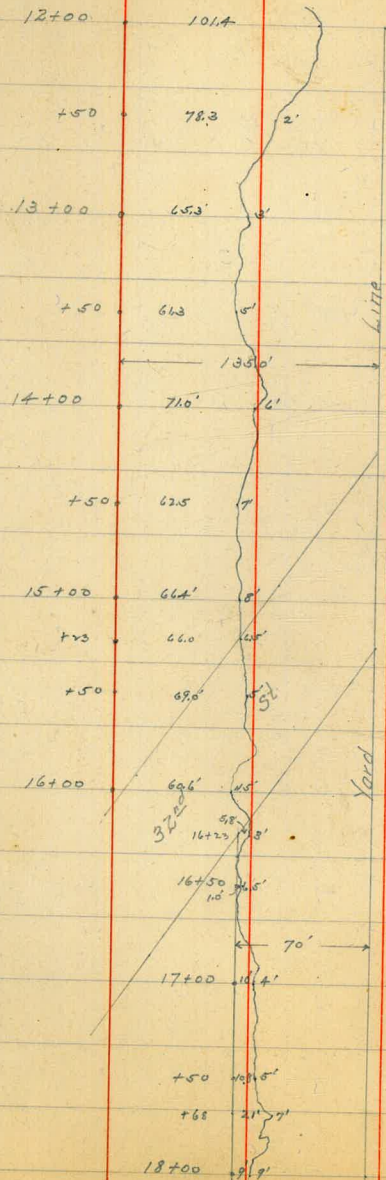 12+00 101.4
+50 78.3 2'
13+00 65.3' 3'
+50 61.3 5'
Line
135.0'
14+00 71.0' 6'
+50 62.5 7'
15+00 66.4' 8'
+23 66.0 6.5'
+50 69.0' 5'
32nd St
16+00 60.6' 4.5'
Yard
5.8
16+23 3'
16+50 6.5'
1.0'
70'
17+00 10' 4'
+50 10.8 5'
+68 21' 7'
18+00 9' 9'